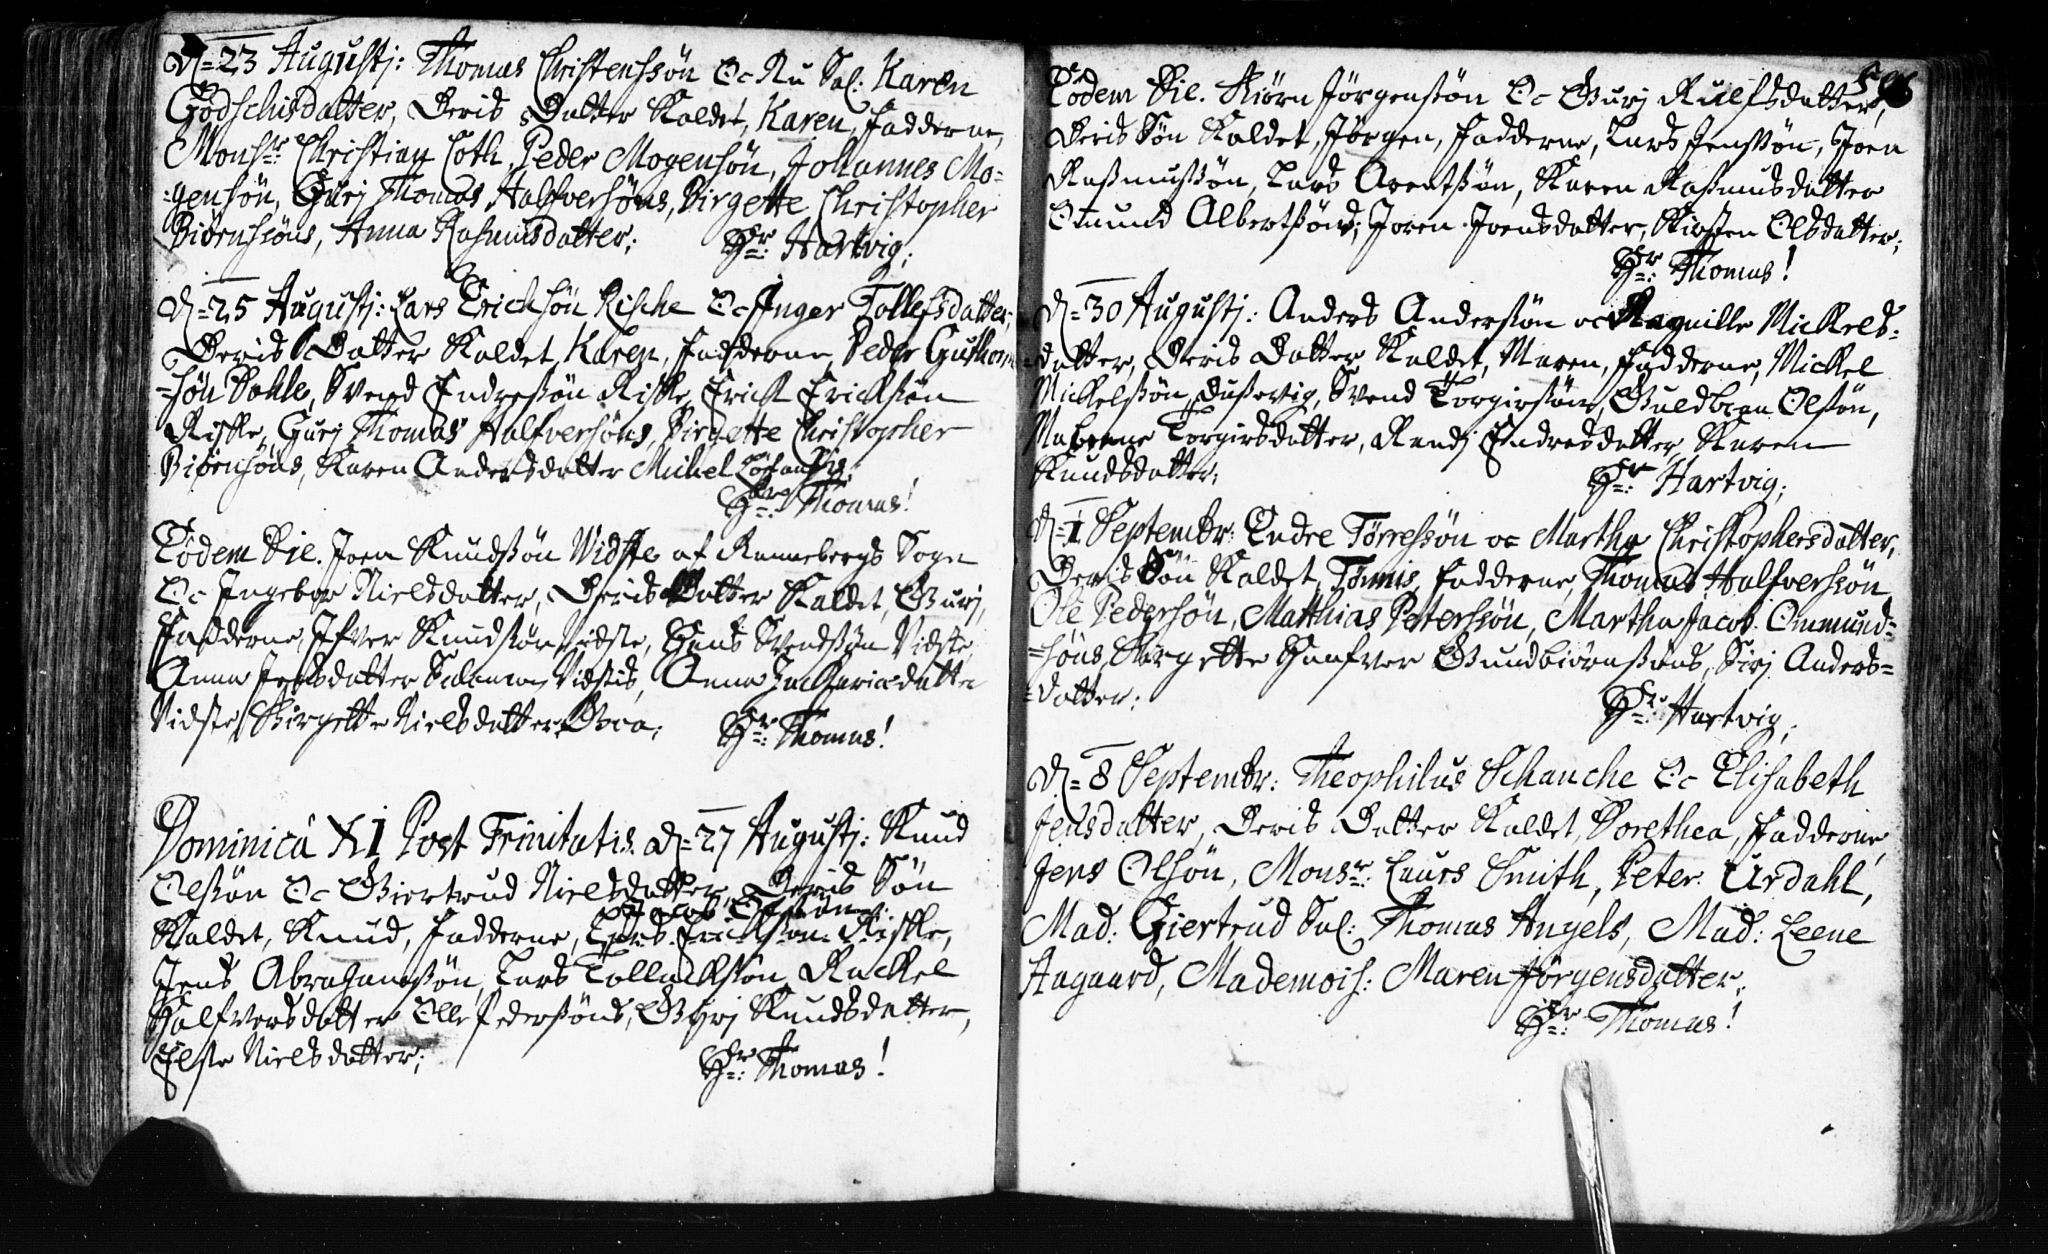 D= 23 Augustj: Thomas Christenssøn Oc Nu Sal: Karen
Godschisdatter, Deris Datter Kaldet, Karen, Fadderne,
Monsr: Christian Coth, Peder Mogensøn, Johannes Mo-
-gensøn, Gurj Thomas Halfversøns, Birgette Christopher
Biørnssøns, Anna Rasmusdatter;
Hr: Hartvig;
D= 25 Augustj: Lars Erichsøn Rische Oc Inger Tollefsdatter;
Deris Datter Kaldet, Karen, Fadderne, Peder Guthorm
=søn Dahle, Svend Endressøn Riske, Erick Ericksøn
Riske, Gurj Thomas Halfversøns, Birgette Christopher
Biørnsøns, Karen Andersdatter Michel
Hr: Thomas!
Eodem Die. Joen Knudssøn Vidste af Rennebergs Sogn
Oc Ingebor Nielsdatter, Deris Datter Kaldet, Gurj,
Fadderne, Ifver Knudssøn Vidste, Hans Svendssøn Vidste,
Anna Jensdatter Vidstes, Anna Zachariædatter
Vidste, Birgette Nielsdatter
Hr: Thomas!
Dominica XI Post Trinitatis. D= 27 Augustj: Knud
Olssøn Oc Giertrud Nielsdatter, Deris Søn
Jacob Olssøn
Kaldet, Knud, Fadderne, Lars Ericksøn Riske,
Jens Abrahamssøn, Lars Tollachssøn, Rackel
Halfversdatter Olle Pederssøns, Gurj Knudsdatter,
Else Nielsdatter;
Hr: Thomas!
596
Eodem Die. Kiørn Jørgenssøn Oc Gurj Rulfsdatter,
Deris Søn Kaldet, Jørgen, Fadderne, Lars Jenssøn, Joen
Rasmussøn, Lars Arentssøn, Karen Rasmusdatter
Omund Albertssøns; Joren Joensdatter, Kirsten Olsdatter;
Hr: Thomas!
D= 30 Augustj: Anders Anderssøn oc Ragnille Mickels-
datter, Deris Datter Kaldet, Maren, Fadderne, Mickel
Mickelssøn Dusevig, Svend Torgierssøn, Guldbran Olssøn,
Torgirsdatter, Randj Endresdatter, Karen
Knudsdatter;
Hr: Hartvig;
D= 1 Septembr: Endre Tørressøn oc Martha Christophersdatter,
Deris Søn Kaldet, Tønnis, Fadderne, Thomas Halfverssøn,
Ole Pederssøn, Matthias Peterssøn, Martha Jacob Ommund-
=søns, Birgette Halfver Gundbiørnssøns, Sirj Anders-
=datter;
Hr: Hartvig;
D= 8 Septembr: Theophilus Schanche Oc Elisabeth
Jensdatter, Deris Datter Kaldet, Dorethea, Fadderne,
Jens Olsøn, Monsr: Laurs Smith, Peter Urdahl,
Mad: Giertrud Sal: Thomas Angels, Mad: Leene
Aagaard, Mademois: Maren Jørgensdatter;
Hr: Thomas!